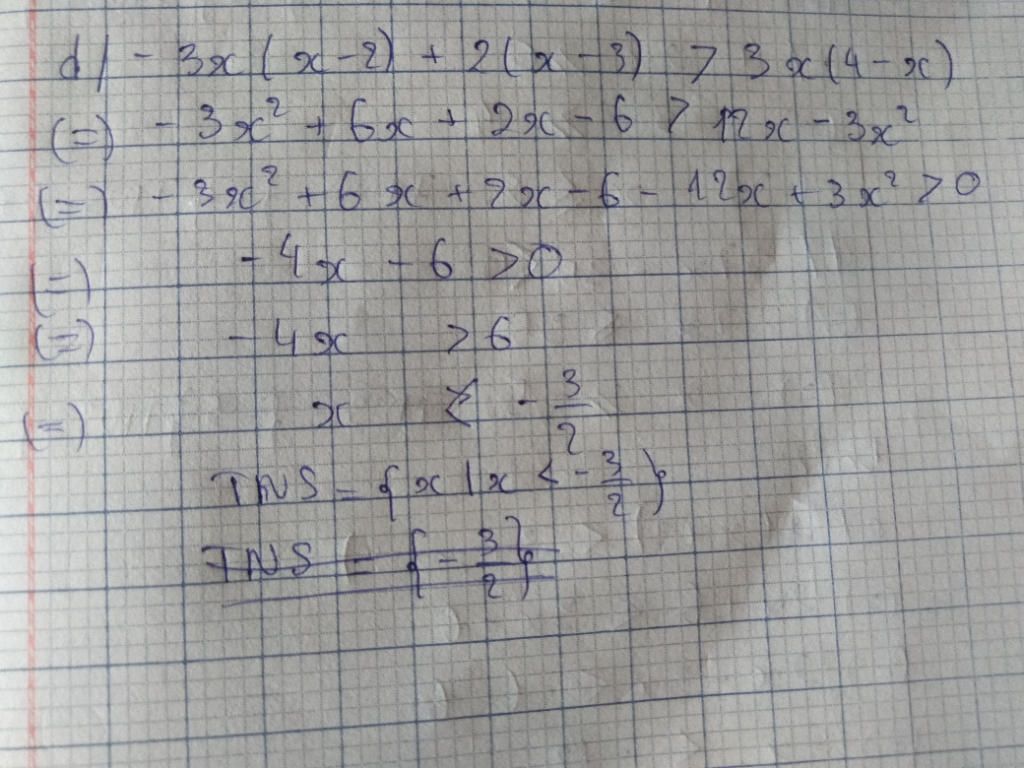 d/ - 3x(x-2) + 2(x-3) > 3x(4-x)
(=) - 3x² + 6x + 2x - 6 > 12x - 3x²
(=) - 3x² + 6x + 2x - 6 - 12x + 3x² > 0
(=) - 4x - 6 > 0
(=) - 4x > 6
(=) x < - 3/2
TNS = {x | x < - 3/2}
TNS = {- 3/2}